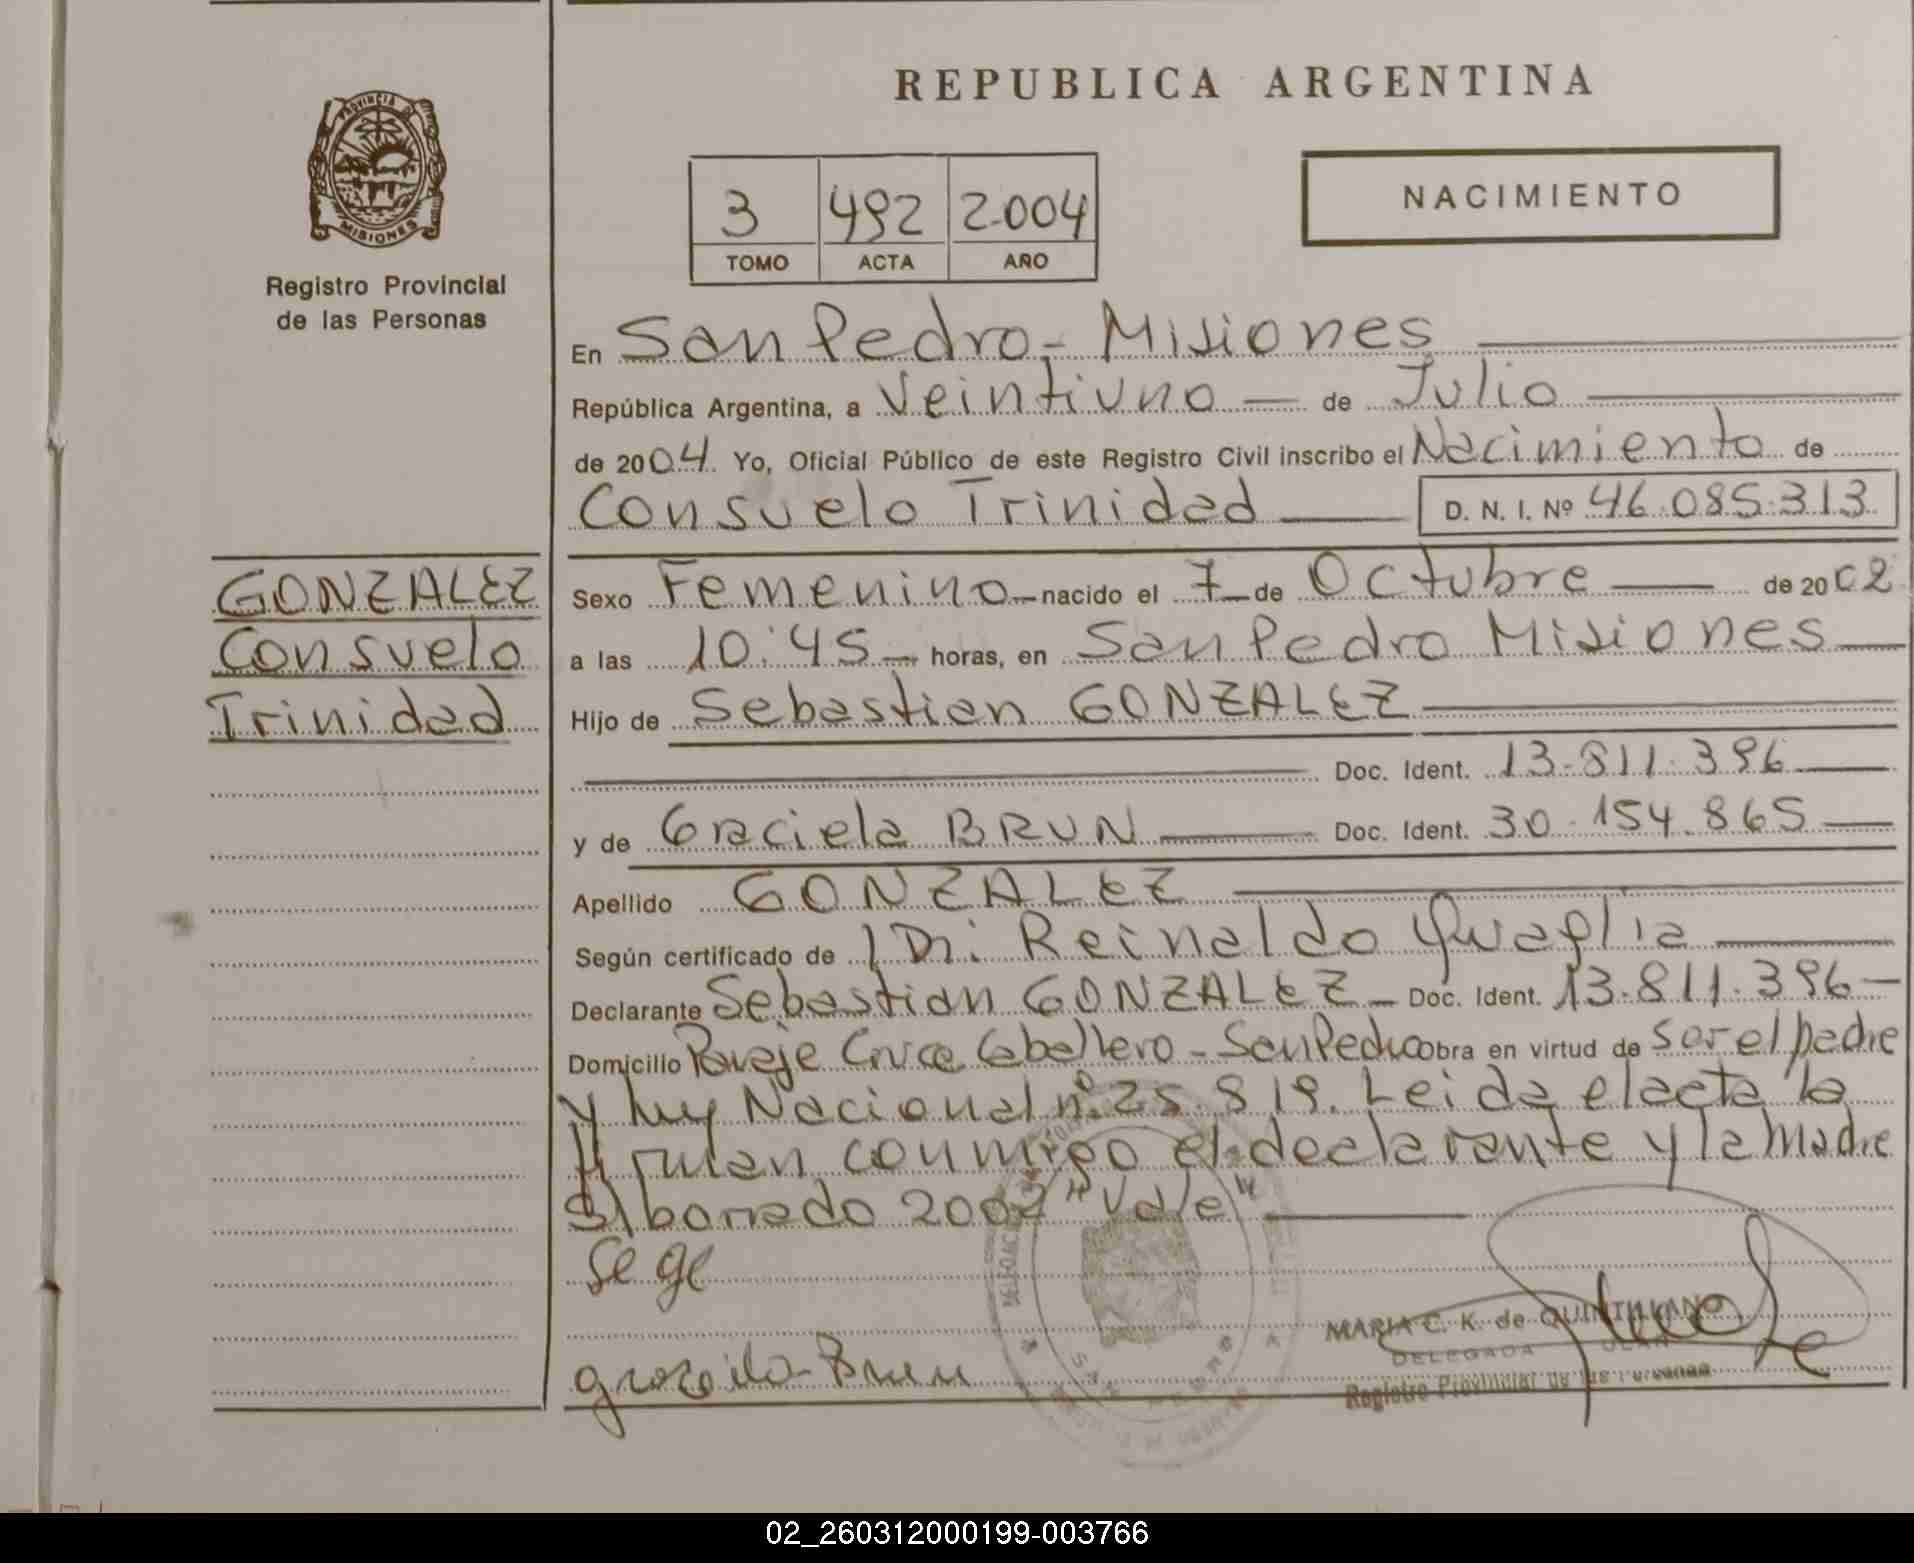 REPUBLICA ARGENTINA
PROVINCIA DE
MISIONES
Registro Provincial
de las Personas
NACIMIENTO
3 492 2.004
TOMO ACTA AÑO
En San Pedro - Misiones
República Argentina, a Veintiuno de Julio
de 2004. Yo, Oficial Público de este Registro Civil inscribo el Nacimiento de
Consuelo Trinidad D. N. I. Nº 46.085.313
GONZALEZ
Consuelo
Trinidad
Sexo Femenino nacido el 7 de Octubre de 2002
a las 10:45 horas, en San Pedro Misiones
Hijo de Sebastian GONZALEZ
Doc. Ident. 13.811.396
y de Graciela BRUN Doc. Ident. 30.154.865
Apellido GONZALEZ
Según certificado de Dr. Reinaldo Quaglia
Declarante Sebastian GONZALEZ Doc. Ident. 13.811.396
Domicilio Paraje Cruce Caballero - San Pedro obra en virtud de ser el padre
y ley Nacional nº 25.819. Leida el acta la
firman conmigo el declarante y la Madre
S/borrado 2002 "Vale"
Se ge
MARIA C. K. de QUINTILLANO
DELEGADA
Registro Provincial de las Personas
Brun
02_260312000199-003766